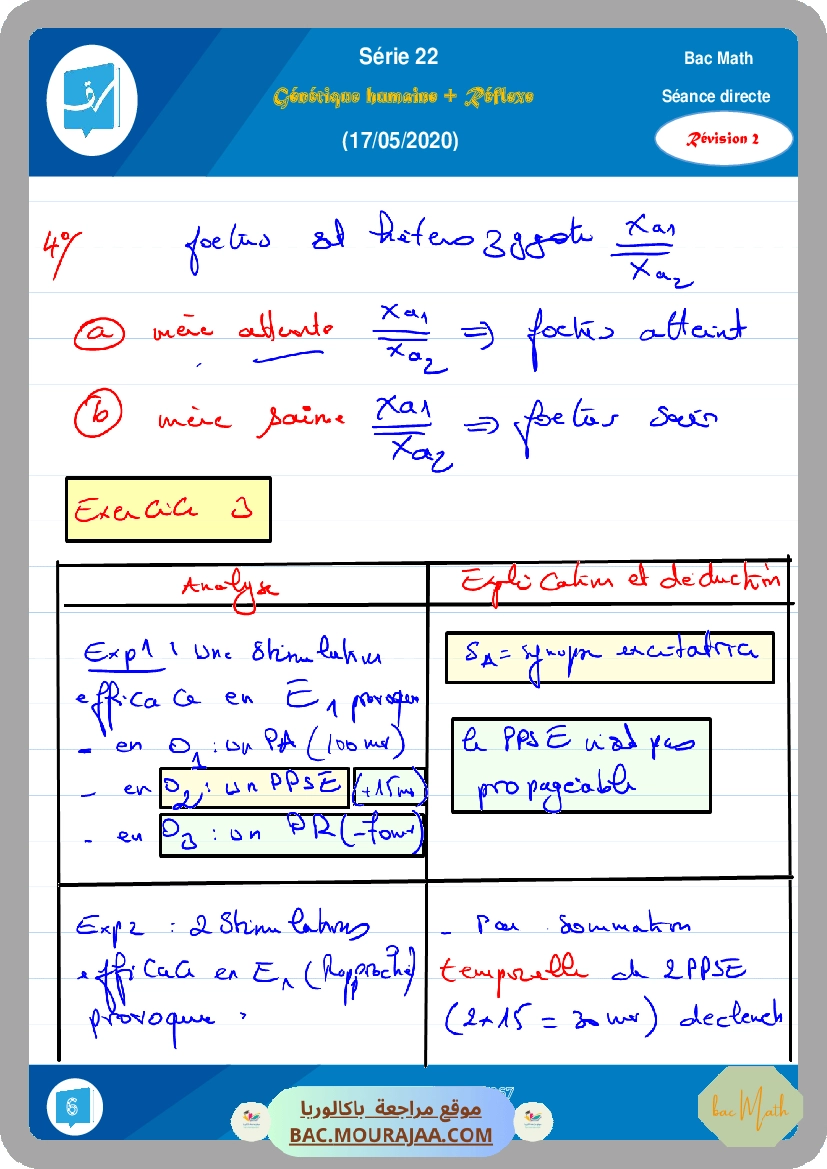 Série 22
Bac Math
Génétique humaine + Réflexe
Séance directe
(17/05/2020)
Révision 2
4°/ foetus est hétérozygote Xa1
Xa2
a mère atteinte Xa1 ⇒ foetus atteint
Xa2
b mère saine Xa1 ⇒ foetus sain
Xa2
Exercice 3
Analyse
Explication et déduction
Exp1 : Une Stimulation
efficace en E1 provoque
- en O1 : un PA (100mv)
- en O2 : un PPSE (+15mv)
- en O3 : un PR (-70mv)
SA = synapse excitatrice
le PPSE n'est pas
propageable
Exp2 : 2 Stimulations
efficace en E1 (Rapproché)
provoque :
- Par sommation
temporelle de 2PPSE
(2*15 = 30mv) declench
6
موقع مراجعة باكالوريا
BAC.MOURAJAA.COM
bac Math